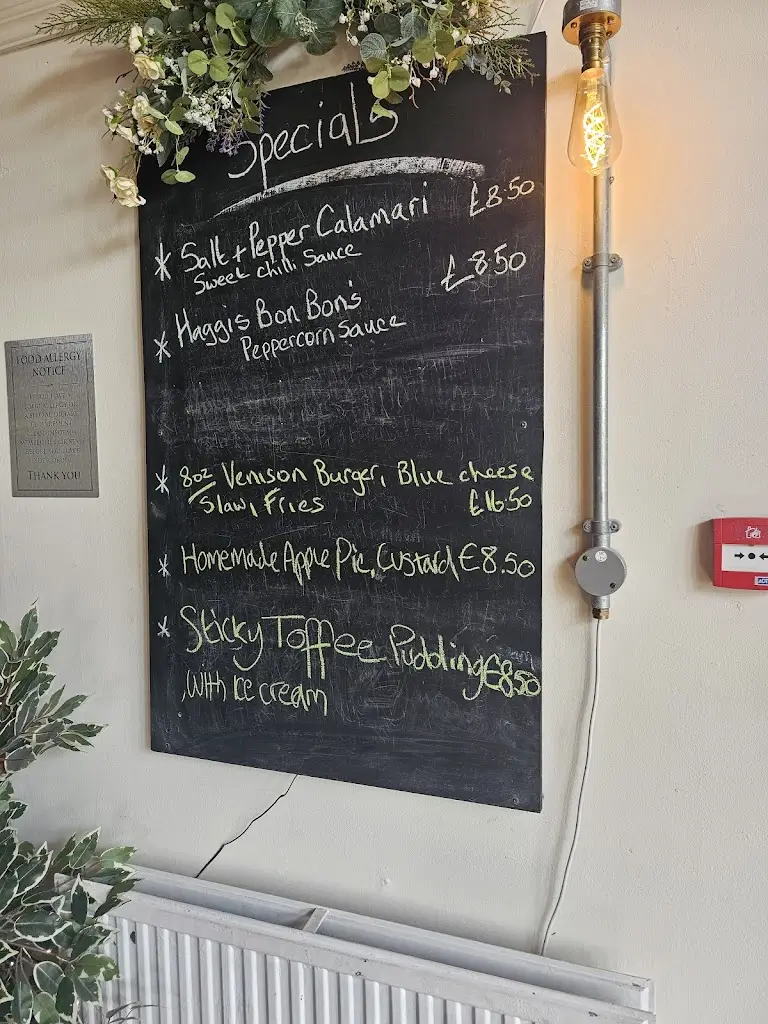 Specials
* Salt + Pepper Calamari £8.50
Sweet Chilli Sauce
* Haggis Bon Bon's £8.50
Peppercorn Sauce
* 8oz Venison Burger, Blue cheese
Slaw, Fries £16.50
* Homemade Apple Pie, Custard £8.50
* Sticky Toffee Pudding £8.50
, With Ice cream
FOOD ALLERGY
NOTICE
THANK YOU